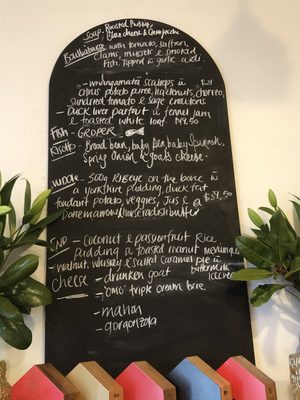 Soup - Roasted Pumpkin,
Blue cheese &
Bouillabaisse with tomato, saffron,
Clams, mussels & smoked
Fish. Topped w garlic aioli
- Whangamata scallops w $21
citrus potato puree, hazelnuts, chorizo
sundried tomato & sage croutons
- Duck liver parfait w fennel jam
& toasted white loaf $19.50
Fish - GROPER
Risotto - Broad bean, baby pea, baby spinach,
Spring onion & goats cheese -
- 500g Ribeye on the bone w
a Yorkshire pudding, duck fat
fondant potato, veggies, Jus & a $39.50
Bonemarrow/horseradish butter
- Coconut & passionfruit Rice
pudding w toasted meringues
- walnut, whiskey & salted caramel pie w
buttermilk
icecream
Cheese - drunken goat
- 'OMG' triple cream brie
- mahon
- gorgonzola